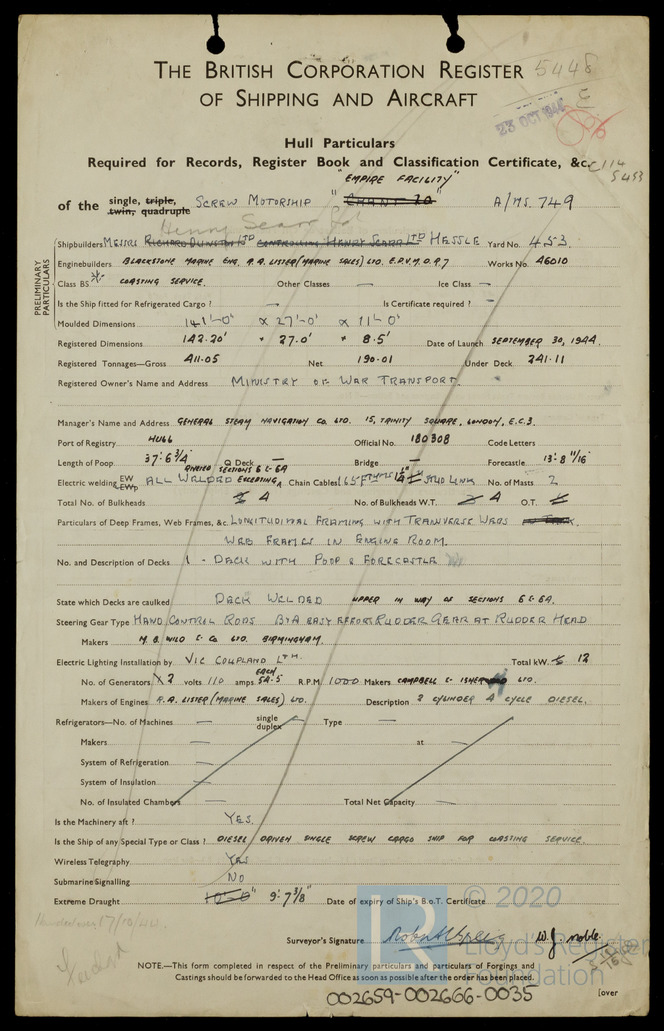 5448
THE BRITISH CORPORATION REGISTER
OF SHIPPING AND AIRCRAFT
23 OCT 1944
Hull Particulars
Required for Records, Register Book and Classification Certificate, &c.
C114
5453
"EMPIRE FACILITY"
of the single, triple, twin, quadruple SCREW MOTORSHIP "CHANT 20" A/MS. 749
Henry Scarr Ltd
PRELIMINARY PARTICULARS
Shipbuilders MESSRS RICHARD DUNSTAN LTD CONTROLLING HENRY SCARR LTD HESSLE Yard No. 453.
Enginebuilders BLACKSTONE MARINE ENG. R.A. LISTER (MARINE SALES) LTD. E.P.V.M.O.R.7 Works No. 46010
Class BS* COASTING SERVICE. Other Classes — Ice Class —
Is the Ship fitted for Refrigerated Cargo? — Is Certificate required? —
Moulded Dimensions 141'-0" × 27'-0" × 11'-0"
Registered Dimensions 142.20' × 27.0' × 8.5' Date of Launch SEPTEMBER 30, 1944.
Registered Tonnages—Gross 411.05 Net 190.01 Under Deck 241.11
Registered Owner's Name and Address MINISTRY OF WAR TRANSPORT.
Manager's Name and Address GENERAL STEAM NAVIGATION CO. LTD. 15, TRINITY SQUARE, LONDON, E.C.3.
Port of Registry HULL Official No. 180308 Code Letters
Length of Poop 37'-6 3/4" Q Deck — Bridge — Forecastle 13'-8 11/16"
RIVETED SECTIONS 6 & 6A
Electric welding EW EWp ALL WELDED EXCEPTING Chain Cables 165 FTHMS STUD LINK No. of Masts 2
Total No. of Bulkheads 4 No. of Bulkheads W.T. 4 O.T.
Particulars of Deep Frames, Web Frames, &c. LONGITUDINAL FRAMING WITH TRANSVERSE WEBS
WEB FRAMES IN ENGINE ROOM.
No. and Description of Decks 1 - DECK WITH POOP & FORECASTLE
State which Decks are caulked DECK WELDED UPPER IN WAY OF SECTIONS 6 & 6A.
Steering Gear Type HAND CONTROL RODS BY A EASY EFFORT RUDDER GEAR AT RUDDER HEAD
Makers M.B. WILD & CO LTD. BIRMINGHAM.
Electric Lighting Installation by VIC COUPLAND LTD. Total kW. 12
No. of Generators 2 volts 110 amps. 54.5 EACH R.P.M. 1000 Makers CAMPBELL & ISHERWOOD LTD.
Makers of Engines R.A. LISTER (MARINE SALES) LTD. Description 2 CYLINDER 4 CYCLE DIESEL.
Refrigerators—No. of Machines — single duplex — Type —
Makers — at —
System of Refrigeration —
System of Insulation —
No. of Insulated Chambers — Total Net Capacity —
Is the Machinery aft? YES.
Is the Ship of any Special Type or Class? DIESEL DRIVEN SINGLE SCREW CARGO SHIP FOR COASTING SERVICE.
Wireless Telegraphy YES
Submarine Signalling NO
Extreme Draught 9'-7 3/8" Date of expiry of Ship's B.o.T. Certificate
Surveyor's Signature W.J. Noble.
NOTE.—This form completed in respect of the Preliminary particulars and particulars of Forgings and
Castings should be forwarded to the Head Office as soon as possible after the order has been placed.
[over
002659-002666-0035
LR
© 2020
Lloyd's Register
Foundation